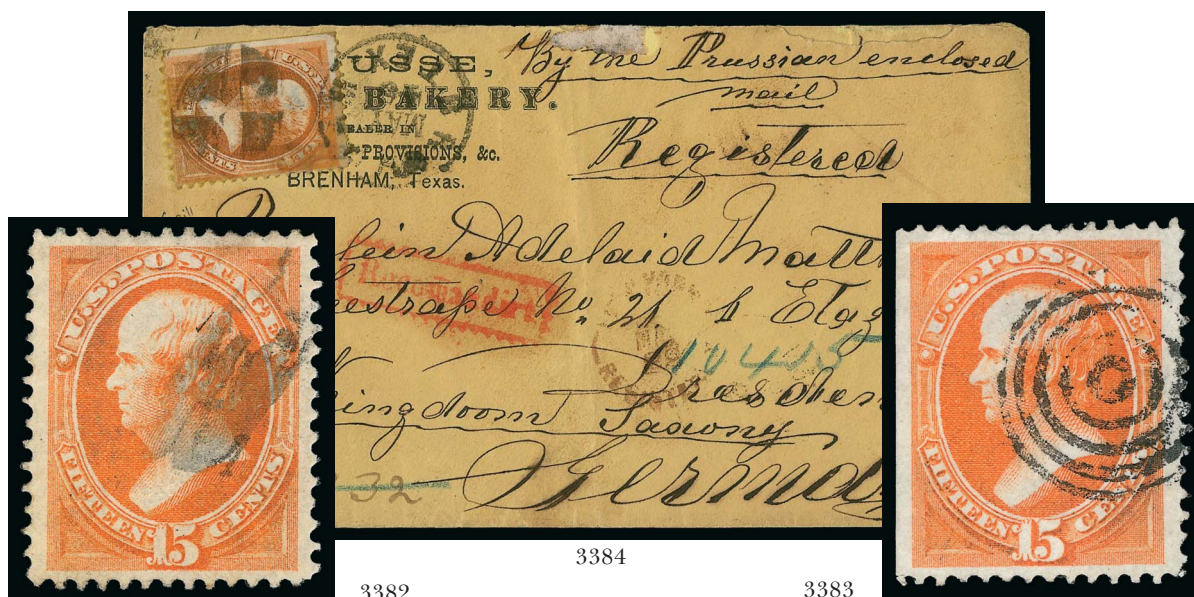 USSE,
BAKERY.
DEALER IN
PROVISIONS, &c.
BRENHAM, Texas.
By the Prussian enclosed
mail
Registered
lein Adelaid Matt
estraße No. 21. 1 Etag
10415
Dresden
ingdoom Saxony
Germa
32
U.S. POSTAGE
FIFTEEN 15 CENTS
U.S. POSTAGE
FIFTEEN 15 CENTS
3384
3382
3383